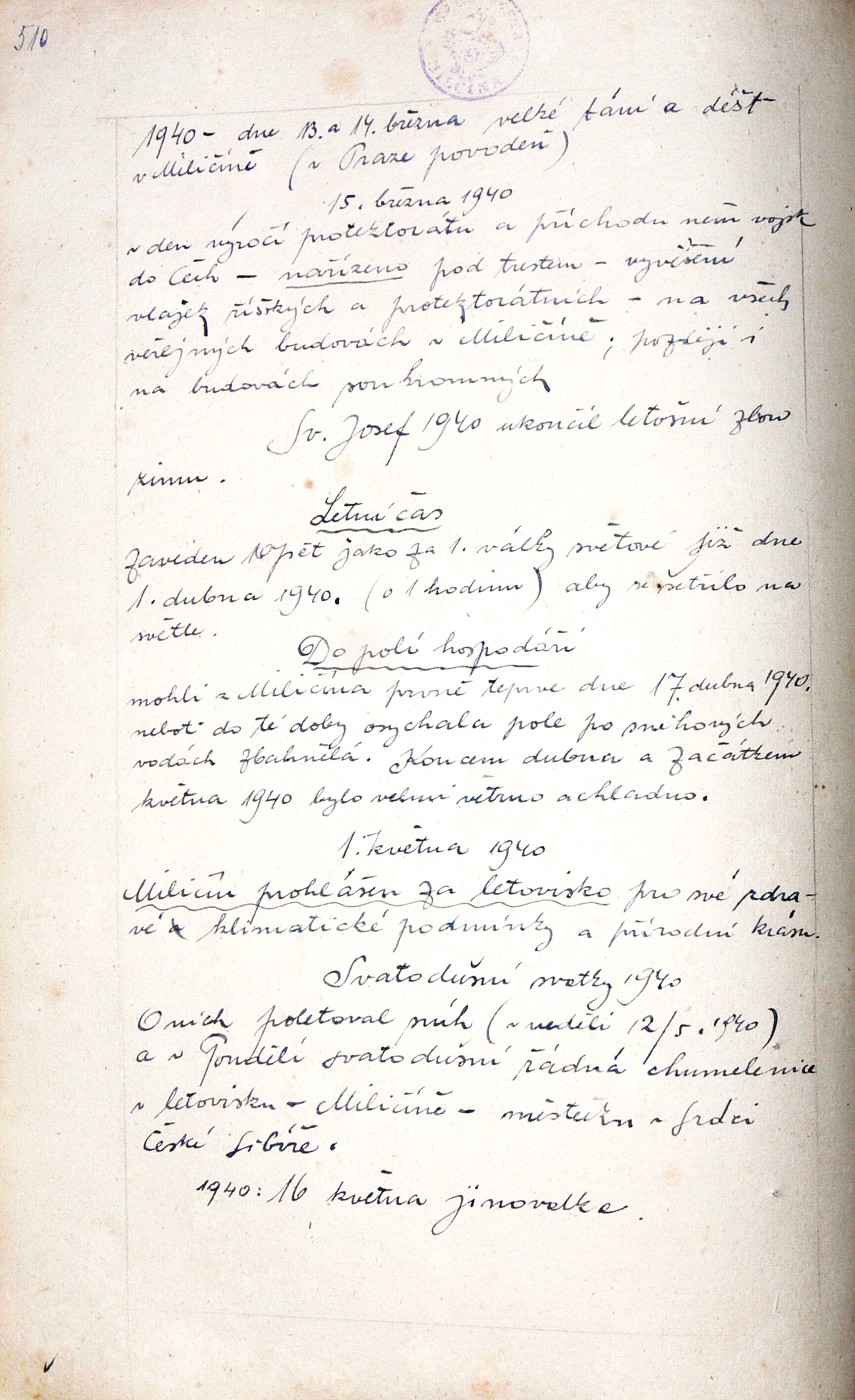 510
1940 - dne 13. a 14. března velké tání a déšť
v Miličíně (v Praze povodeň)
15. března 1940
v den výročí protektorátu a příchodu něm vojsk
do Čech - nařízeno pod trestem - vyvěšení
vlajek říšských a protektorátních - na všech
veřejných budovách v Miličíně; později i
na budovách soukromných
Sv. Josef 1940 ukončil letošní zlou
zimu.
Letní čas
zaveden opět jako za 1. války světové již dne
1. dubna 1940. (o 1 hodinu) aby se šetřilo na
světle.
Do polí hospodáři
mohli z Miličína prvně teprve dne 17. dubna 1940.
neboť do té doby osychala pole po sněhových
vodách zbahnělá. Koncem dubna a začátkem
května 1940 bylo velmi větrno a chladno.
1. května 1940
Miličín prohlášen za letovisko pro své zdra-
vé klimatické podmínky a přírodní krásu.
Svatodušní svátky 1940
O nich poletoval sníh (v neděli 12/5. 1940)
a v Pondělí svatodušní řádná chumelenice
v letovisku - Miličíně - městečku v srdci
České Sibiře.
1940: 16 května jinovatka.